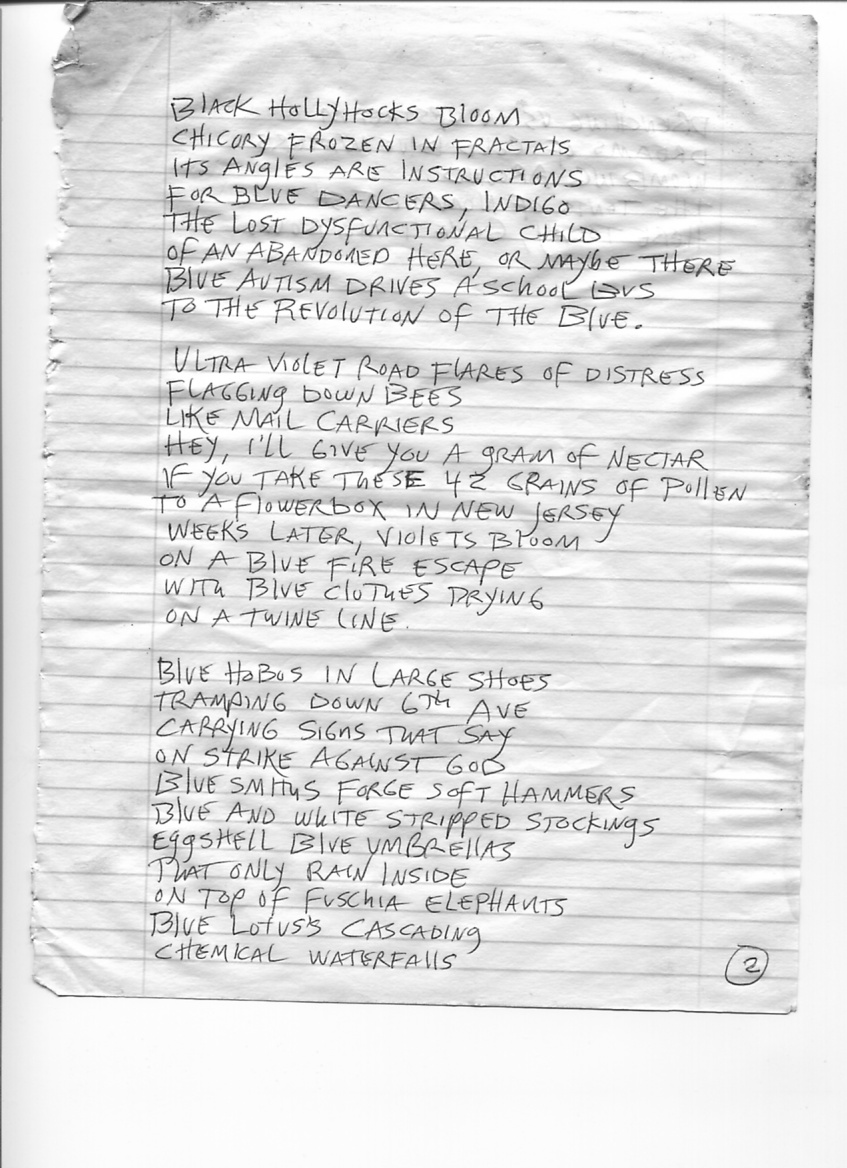 BLACK HOLLYHOCKS BLOOM
CHICORY FROZEN IN FRACTALS
ITS ANGLES ARE INSTRUCTIONS
FOR BLUE DANCERS, INDIGO
THE LOST DYSFUNCTIONAL CHILD
OF AN ABANDONED HERE, OR MAYBE THERE
BLUE AUTISM DRIVES A SCHOOL BUS
TO THE REVOLUTION OF THE BLUE.
ULTRA VIOLET ROAD FLARES OF DISTRESS
FLAGGING DOWN BEES
LIKE MAIL CARRIERS
HEY, I'LL GIVE YOU A GRAM OF NECTAR
IF YOU TAKE THESE 42 GRAINS OF POLLEN
TO A FLOWERBOX IN NEW JERSEY
WEEKS LATER, VIOLETS BLOOM
ON A BLUE FIRE ESCAPE
WITH BLUE CLOTHES DRYING
ON A TWINE LINE.
BLUE HOBOS IN LARGE SHOES
TRAMPING DOWN 6TH AVE
CARRYING SIGNS THAT SAY
ON STRIKE AGAINST GOD
BLUE SMITHS FORGE SOFT HAMMERS
BLUE AND WHITE STRIPPED STOCKINGS
EGGSHELL BLUE UMBRELLAS
THAT ONLY RAIN INSIDE
ON TOP OF FUSCHIA ELEPHANTS
BLUE LOTUS'S CASCADING
CHEMICAL WATERFALLS
2